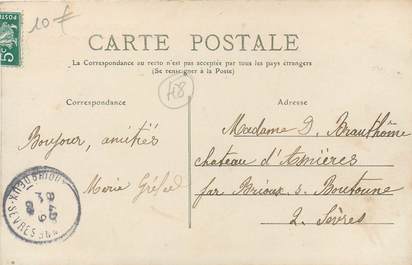 10 F
5c
CARTE POSTALE
La Correspondance au recto n'est pas acceptée par tous les pays étrangers
(Se renseigner à la Poste)
48
Correspondance
Adresse
Bonjour, amitiés
Marie
Madame D. Brauthôme
chateau d'Asnières
par Brioux s. Boutonne
2. Sèvres
DEUX-SÈVRES